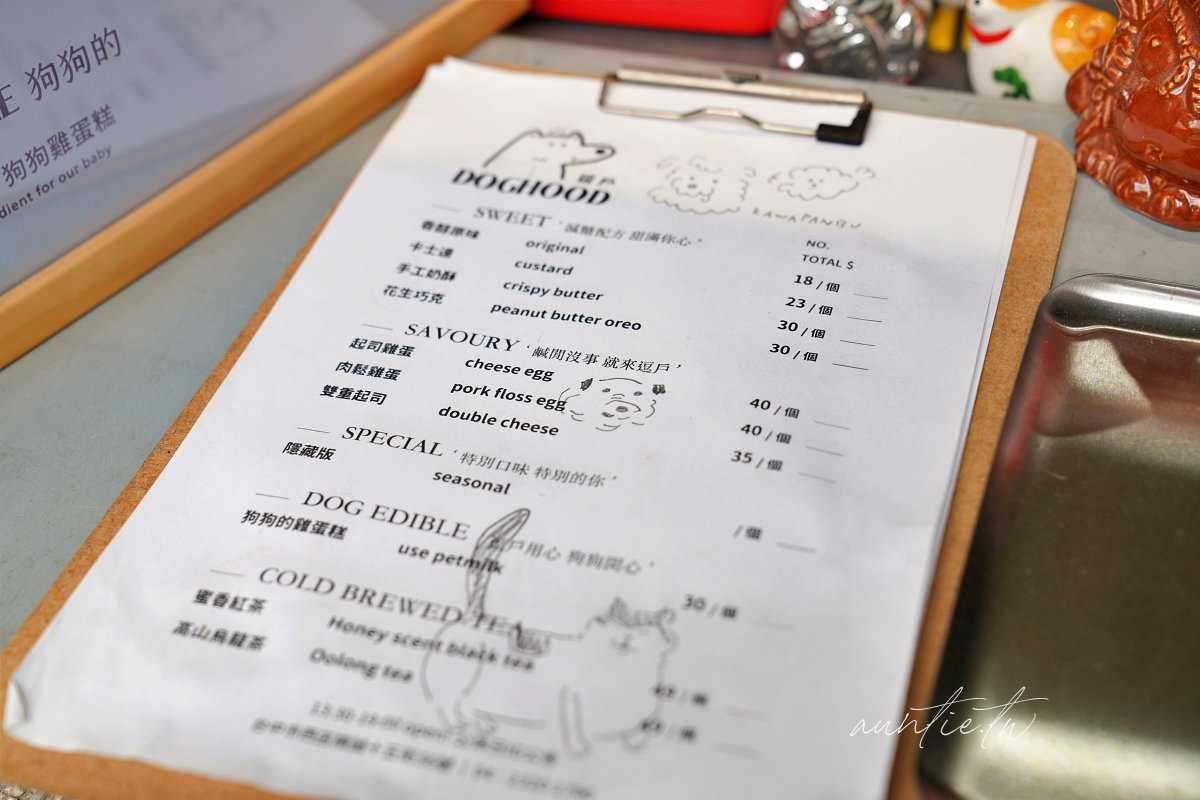 E 狗狗的
狗狗雞蛋糕
dient for our baby
逗戶
DOGHOOD
KAWAPANBU
NO.
TOTAL $
SWEET ‘減糖配方 甜滿你心’
香醇原味 original 18 / 個
卡士達 custard 23 / 個
手工奶酥 crispy butter 30 / 個
花生巧克 peanut butter oreo 30 / 個
SAVOURY ‘鹹閒沒事 就來逗戶’
起司雞蛋 cheese egg 40 / 個
肉鬆雞蛋 pork floss egg 40 / 個
雙重起司 double cheese 35 / 個
SPECIAL ‘特別口味 特別的你’
隱藏版 seasonal / 個
DOG EDIBLE 戶用心 狗狗開心’
狗狗的雞蛋糕 use petmilk 30 / 個
COLD BREWED TEA
蜜香紅茶 Honey scent black tea
高山烏龍茶 Oolong tea
auntie.tw